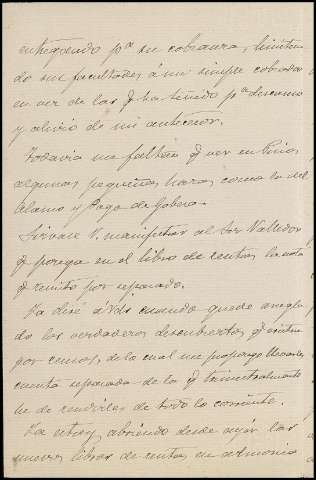 entregando pª su cobranza, limitan
do sus facultades á un simple cobrador
en vez de las q̃ ha tenido pª descanso
y alivio de mi antecesor.
Todavia me faltan q̃ ver en Pinos
algunas pequeñas hazas como la del
Alamo y Pago de Gabera.
Sirvase V. manifestar al Sor Valledor
q̃ ponga en el libro de rentas la nota
q̃ remito por separado.
Ya diré á Vds cuando quede arregla
do los verdaderos descubiertos q̃ existen
por censos, de lo cual me propongo llevarles
cuenta separada de la q̃ trimestralmente
he de rendirles de todo lo corriente.
Ya estoy abriendo desde ayer los
nuevos libros de rentas en armonia